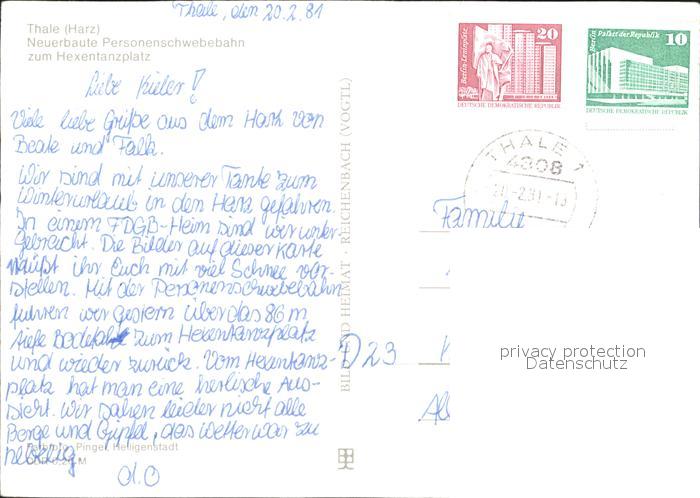 Thale, den 20.2.81
Thale (Harz)
Neuerbaute Personenschwebebahn
zum Hexentanzplatz
Liebe Kieler!
Viele liebe Grüße aus dem Harz von
Beate und Falk.
Wir sind mit unserer Tante zum
Winterurlaub in den Harz gefahren.
In einem FDGB-Heim sind wir unter-
gebracht. Die Bilder auf dieser Karte
müßt ihr Euch mit viel Schnee vor-
stellen. Mit der Personenschwebebahn
fuhren wir gestern über das 86 m
tiefe Bodetal zum Hexentanzplatz
und wieder zurück. Vom Hexentanz-
platz hat man eine herrliche Aus-
sicht. Wir sahen leider nicht alle
Berge und Gipfel, das Wetter war zu
nebelig.
Pingel, Heiligenstadt
BILD UND HEIMAT · REICHENBACH (VOGTL)
Berlin-Leninplatz
20
DEUTSCHE DEMOKRATISCHE REPUBLIK
Berlin Palast der Republik
10
DEUTSCHE DEMOKRATISCHE REPUBLIK
THALE 1
4308
Familie
D 23
privacy protection
Datenschutz